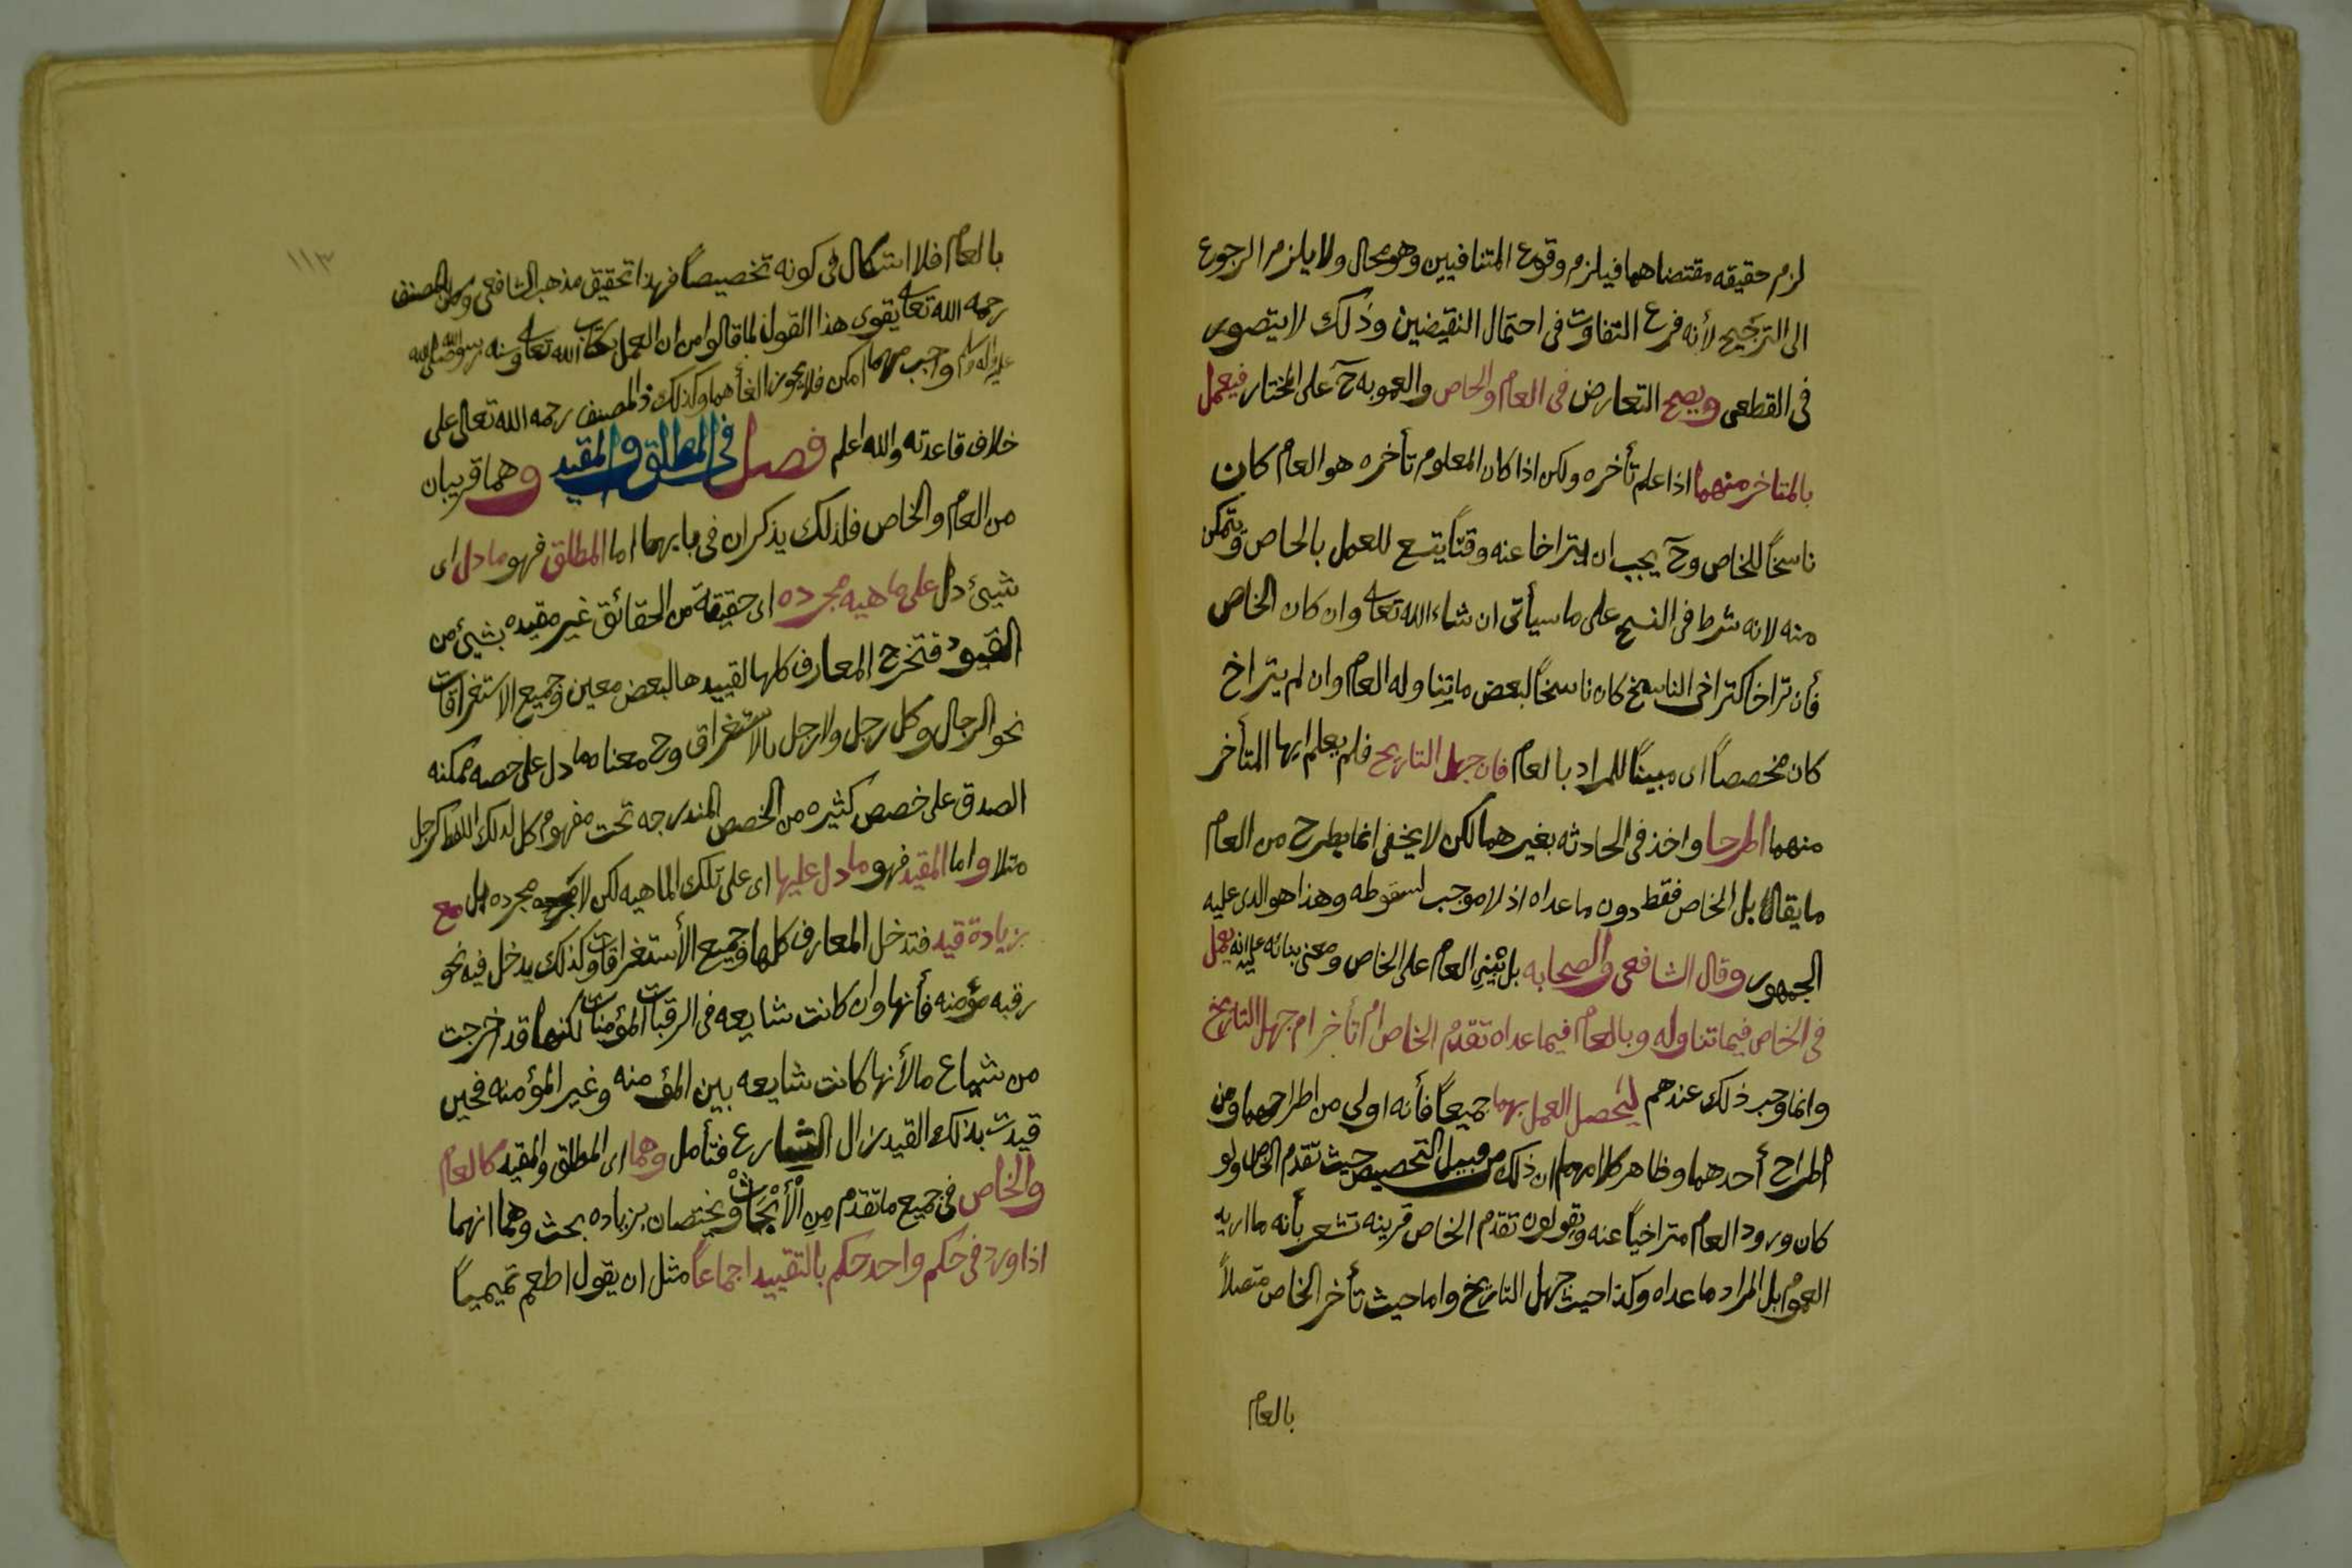 لزم حقيقه مقتضاهما فيلزم وقوع المتنافيين وهو محال ولا يلزم الرجوع
الى الترجيح لأنه فرع التفاوت في احتمال النقيضين وذلك لا يتصور
في القطعي ويصح التعارض في العام والخاص والعمو به ح على المختار فيعمل
بالمتاخر منهما اذا علم تأخره ولكن اذا كان المعلوم تأخره هو العام كان
ناسخاً للخاص وح يجب ان يتراخا عنه وقتاً يتسع للعمل بالخاص ويتمكن
منه لانه شرط في النسخ على ما سيأتي ان شاء الله تعالى وان كان الخاص
فأن تراخا كتراخي الناسخ كان ناسخاً لبعض ما يتناوله العام وان لم يتراخ
كان مخصصاً اى مبيناً للمراد بالعام فان جهل التاريخ فلم يعلم ايها المتأخر
منهما اطرحا واخذ في الحادثه بغيرهما لكن لا يخفى انما يطرح من العام
ما يقابل الخاص فقط دون ما عداه اذ لا موجب لسقوطه وهذا هو الذى عليه
الجمهور وقال الشافعي والصحابه بل يبنى العام على الخاص ومعنى بنائه عليه انه يعمل
في الخاص فيما تناوله وبالعام فيما عداه تقدم الخاص ام تأخر ام جهل التاريخ
وانما وجب ذلك عندهم ليحصل العمل بهما جميعاً فأنه اولى من اطراحهما ومن
اطراح أحدهما وظاهر كلامهم ان ذلك من قبيل التخصيص حيث تقدم الخاص ولو
كان ورود العام متراخياً عنه ويقولون تقدم الخاص قرينه تشعر بأنه ما اريد
العموم بل المراد ما عداه وكذا حيث جهل التاريخ واما حيث تأخر الخاص متصلاً
بالعام
١١٣
بالعام فلا اشكال في كونه تخصيصاً فهذا تحقيق مذهب الشافعي وكلام المصنف
رحمه الله تعالى يقوى هذا القول لما قالوا من ان العمل بكتاب الله تعالى وسنه رسول الله صلى الله
عليه واله وسلم واجب مهما امكن فلا يجوز الغأهما وكذلك ذ المصنف رحمه الله تعالى على
خلاف قاعدته والله اعلم فصل في المطلق والمقيد وهما قريبان
من العام والخاص فلذلك يذكران في بابهما اما المطلق فهو ما دل اى
شيئ دل على ماهيه مجرده اى حقيقة من الحقائق غير مقيده بشيئ من
القيود فتخرج المعارف كلها لتقييدها لبعض معين وجميع الاستغراقات
نحو الرجال وكل رجل ولا رجل بالاستغراق وح معنا ما دل على حصه ممكنه
الصدق على خصص كثيره من الخصص المندرجه تحت مفهوم كل لذلك اللفظ كرجل
مثلا واما المقيد فهو ما دل عليها اى على تلك الماهيه لكن لا مجرده بل مع
زيادة قيد فتدخل المعارف كلها وجميع الأستغراقات وكذلك يدخل فيه نحو
رقبه مؤمنه فأنها وان كانت شايعه في الرقبات المؤمنات لكنها قد اخرجت
من شياع ما لأنها كانت شايعه بين المؤمنه وغير المؤمنه فحين
قيدت بذلك القيد زال الشارع فتأمل وهما اى المطلق والمقيد كالعام
والخاص في جميع ما تقدم من الأبحاث ويختصان بزياده بحث وهما انهما
اذا ورد في حكم واحد حكم بالتقييد اجماعاً مثل ان يقول اطعم تميمياً